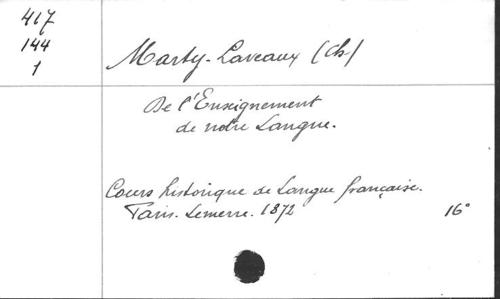 417
144
1
Marty-Laveaux (Ch)
De l'Enseignement
de notre Langue.
Cours historique de Langue française.
Paris. Lemerre. 1872 16°